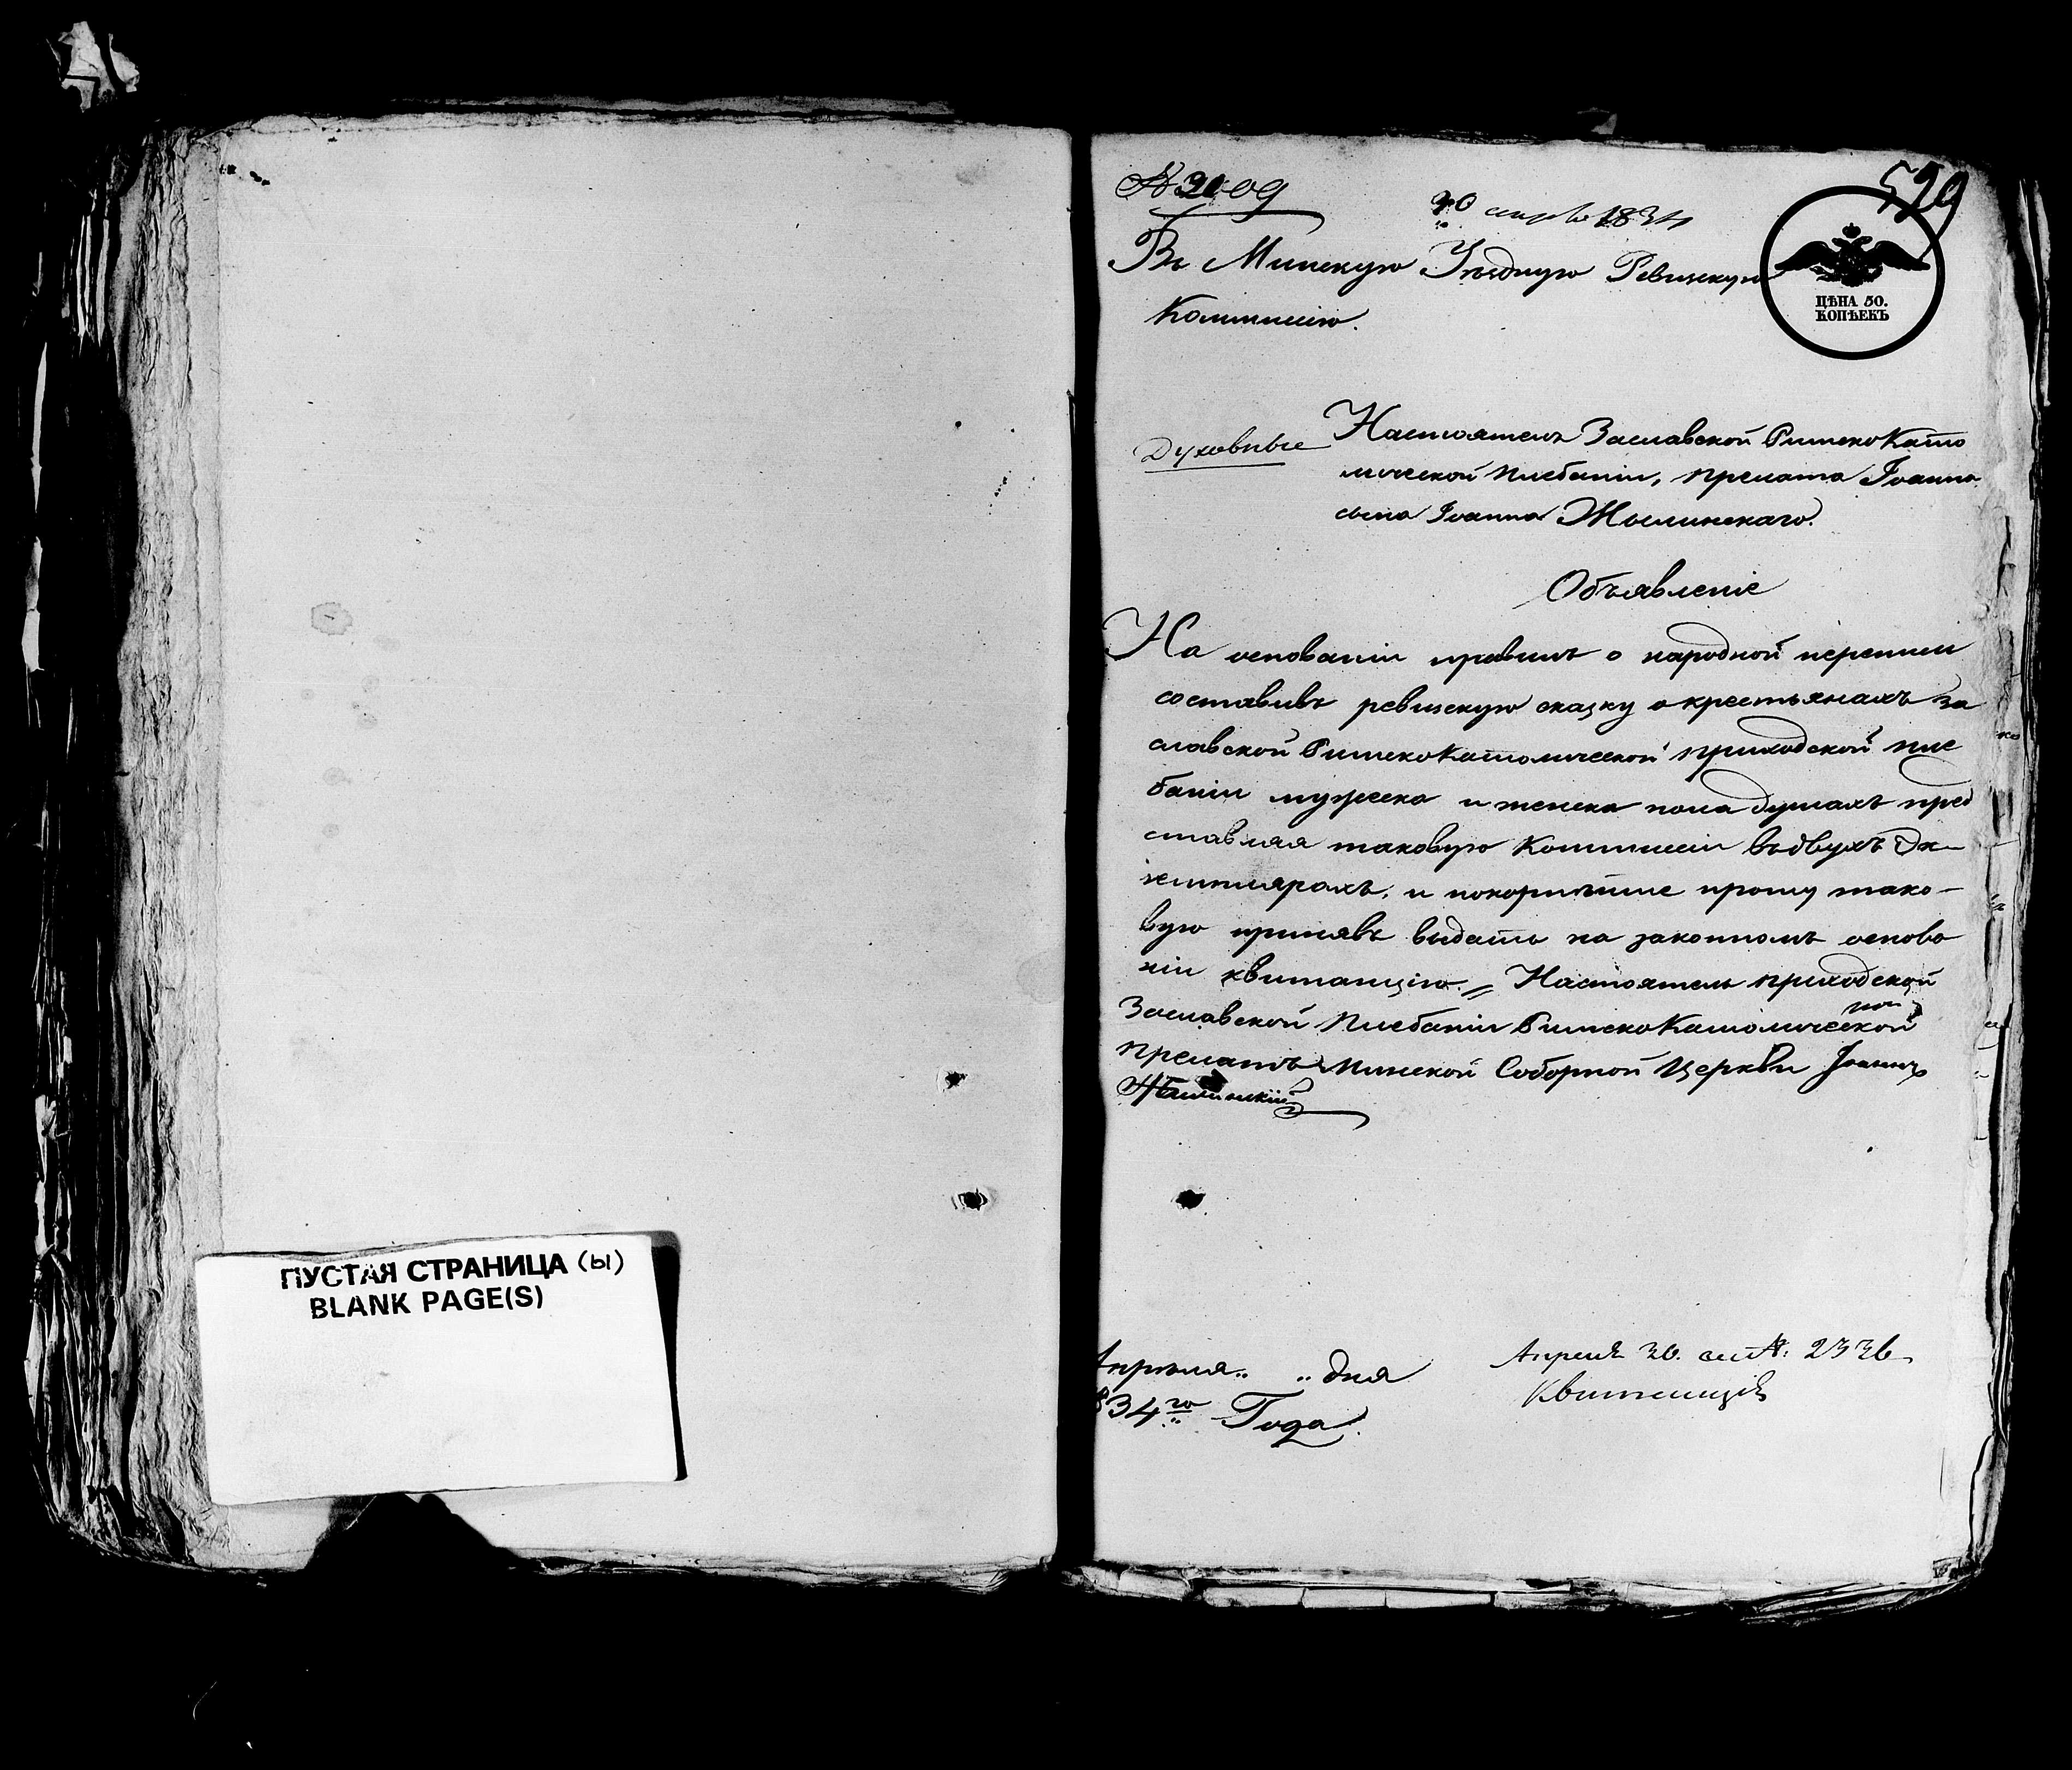 ПУСТАЯ СТРАНИЦА (ы)
BLANK PAGE(S)
529
30 апрѣ 1834
Въ Минскую Уѣздную Ревизскую
Коммисію.
ЦѢНА 50.
КОПѢЕКЪ
Духовные
Настоятеля Заславской РимскоКато
лической плебаніи, прелата Іоанна
сына Іоанна Жылинскаго.
Объявленіе
На основаніи правилъ о народной переписи
составивъ ревизскую сказку о крестьянахъ За
славской РимскоКатолической приходской пле
баніи мужеска и женска пола душахъ пред
ставляя таковую Коммисіи въ двухъ Эк
земплярахъ, и покорнѣйше прошу тако-
вую принявъ выдать на законномъ основа
ніи квитанцію. Настоятель приходской
Заславской Плебаніи РимскоКатолической
прелатъ Минской Соборной Церкви Іоаннъ
Жылинскій
Апрѣля „ „ дня
834го Года.
Апреля 30. 2336
Квитанція